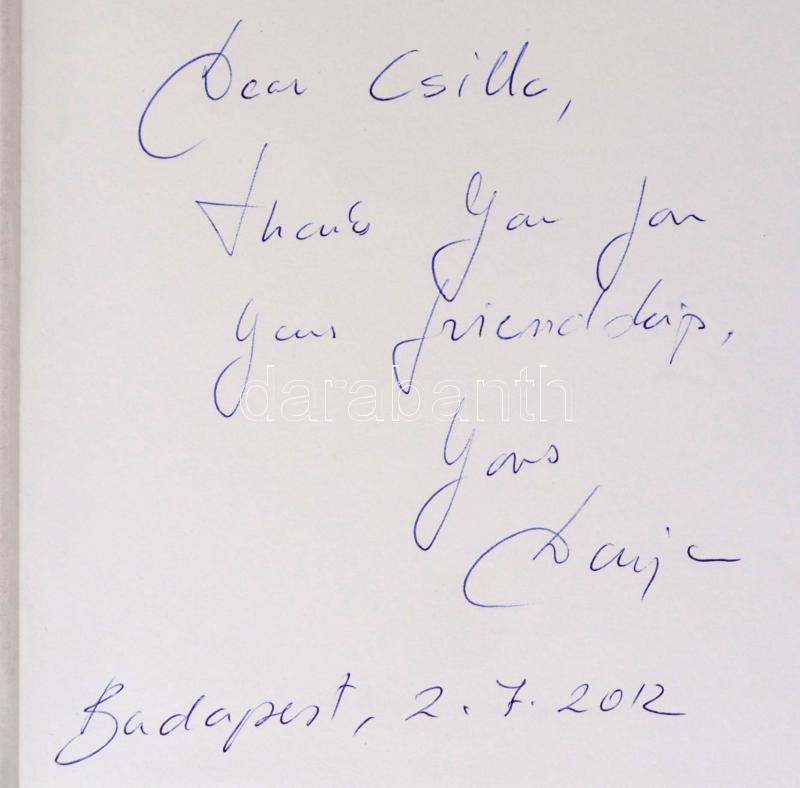 Dear Csilla,
Thank You for
your friendship.
darabanth
Yours
Darja
Budapest, 2. 7. 2012